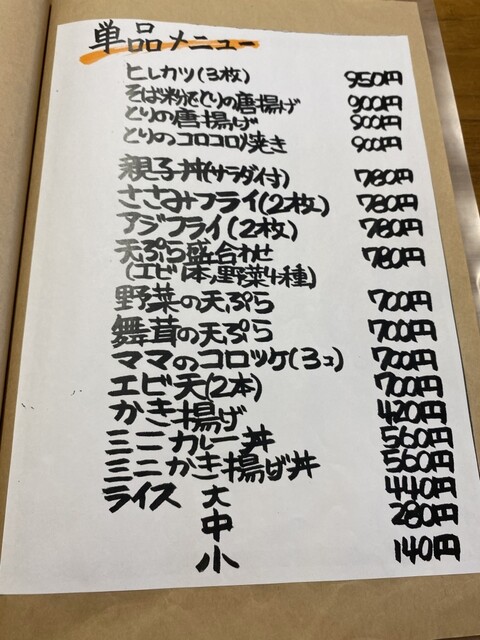 単品メニュー
ヒレカツ(3枚) 950円
そば粉でとりの唐揚げ 900円
とりの唐揚げ 900円
とりのコロコロ焼き 900円
親子丼(サラダ付) 780円
ささみフライ(2枚) 780円
アジフライ(2枚) 780円
天ぷら盛合わせ 780円
(エビ1本,野菜4種)
野菜の天ぷら 700円
舞茸の天ぷら 700円
ママのコロッケ(3コ) 700円
エビ天(2本) 700円
かき揚げ 420円
ミニカレー丼 560円
ミニかき揚げ丼 560円
ライス 大 440円
中 280円
小 140円